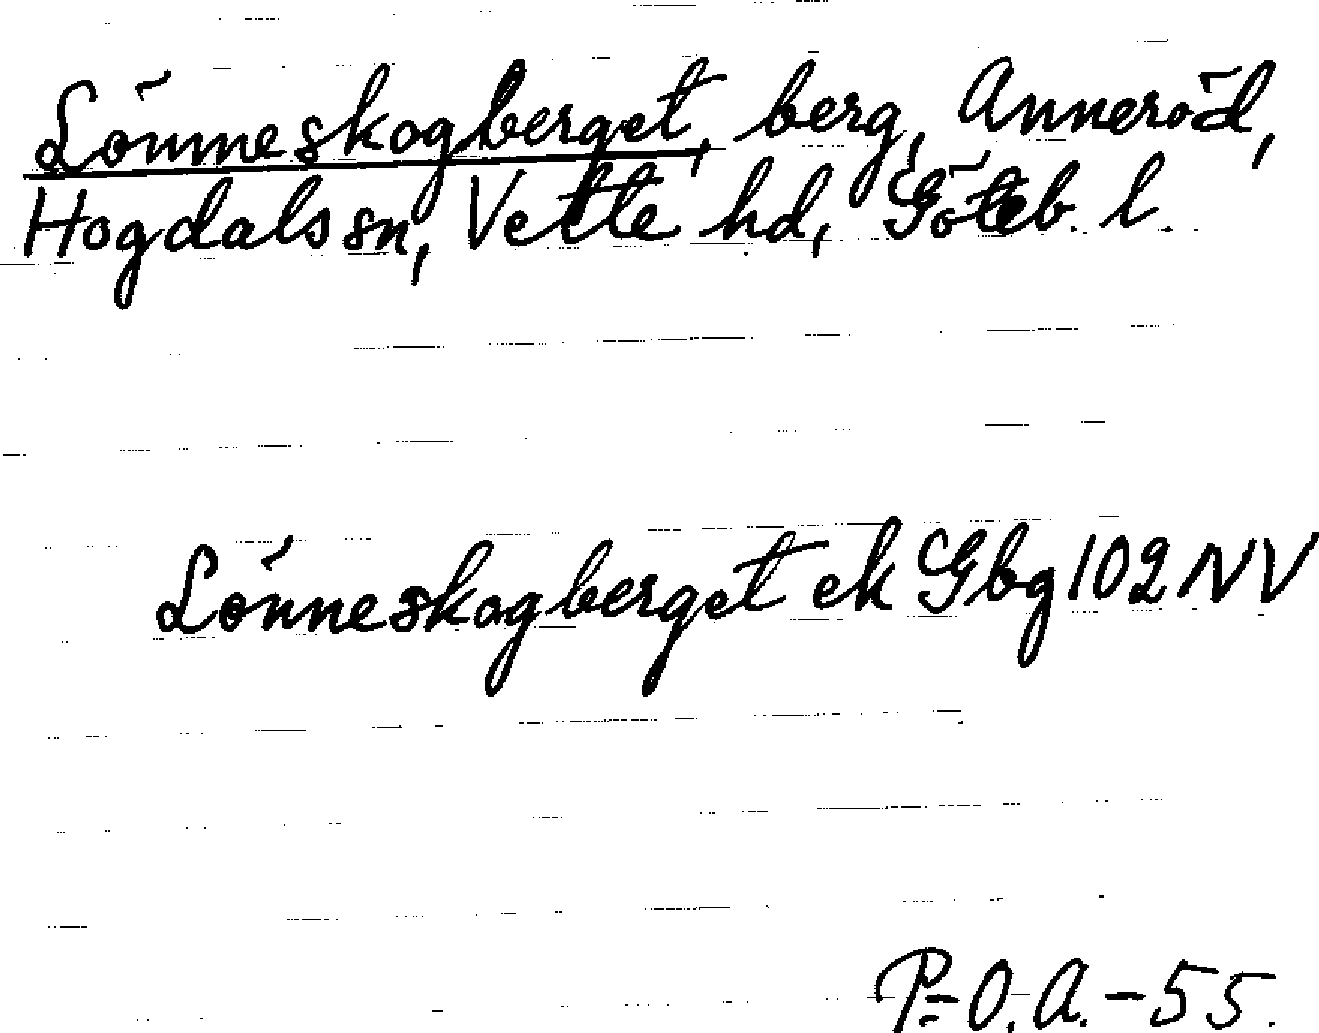 Lönneskogberget, berg, Anneröd,
Hogdals sn, Vette hd, Göteb. l.
Lönneskogberget ek Gbg 102 NV
P.-O. A. - 55.